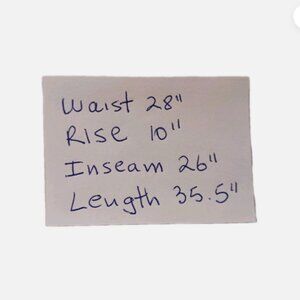 Waist 28"
Rise 10"
Inseam 26"
Length 35.5"